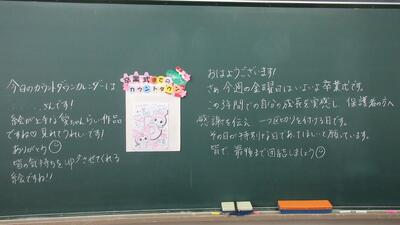 今日のカウントダウンカレンダーは
．．．．．さんです！
絵が上手な 愛ちゃんらしい作品
ですね♡ 見れてうれしいです！
ありがとう
皆の気持ちをUPさせてくれる
絵ですね!!
卒業式までの
カウントダウン
おはようございます！
さぁ 今週の金曜日はいよいよ卒業式です。
この3年間での自分の成長を実感し、保護者の方へ
感謝を伝え 一つ区切りを付ける日です。
その日が特別な日であってほしいと願っています。
皆で、最後まで団結しましょう